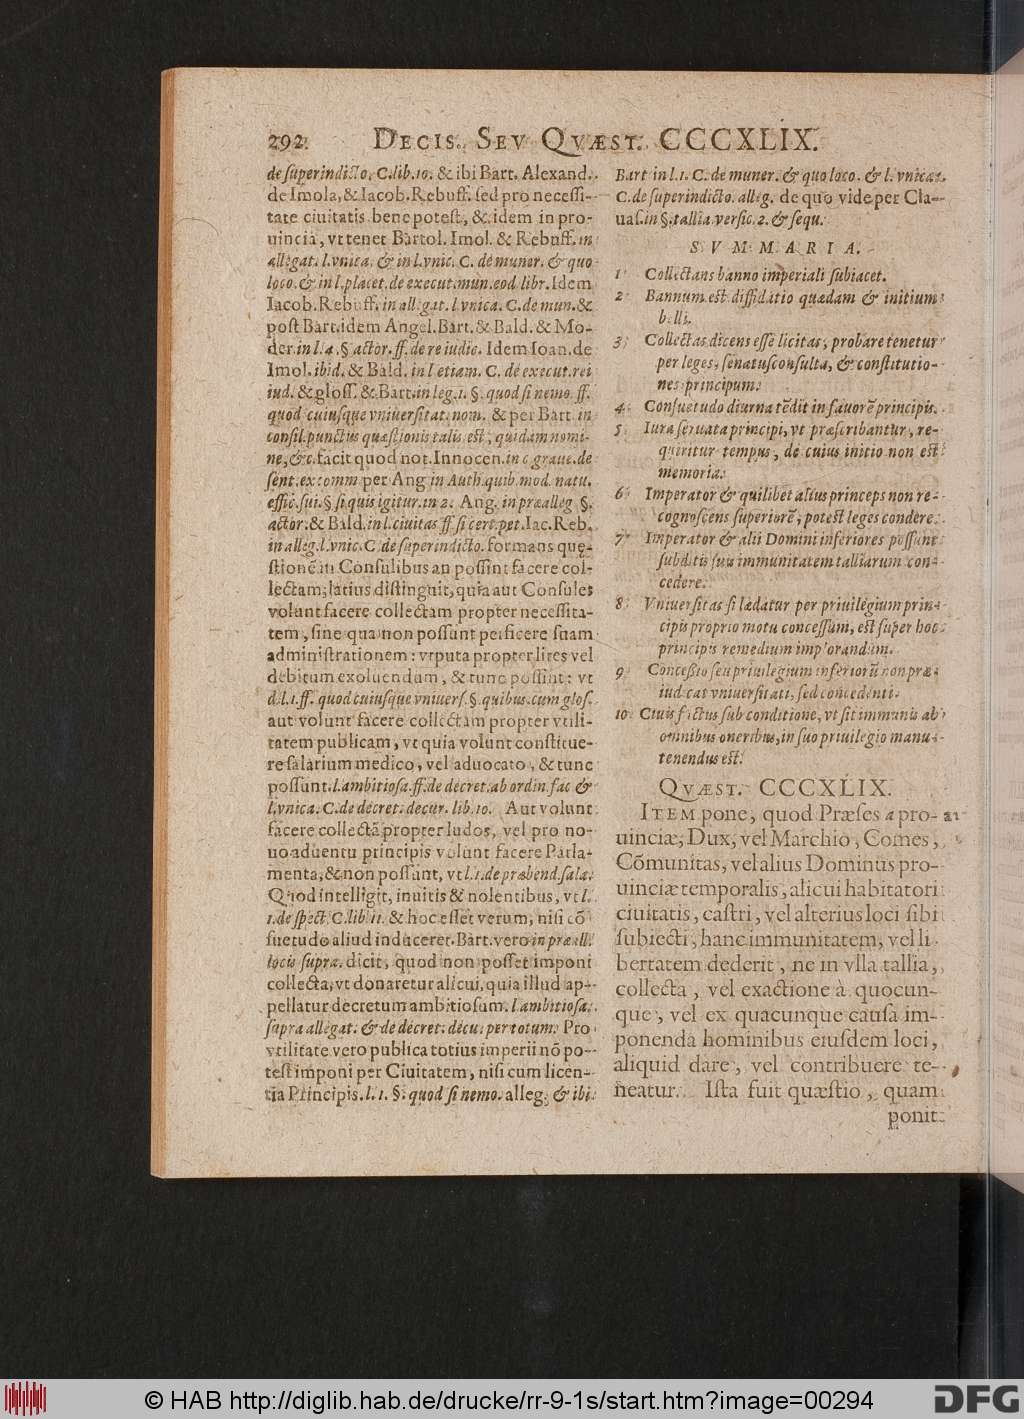 292. DECIS. SEV QVÆST. CCCXLIX.
de superindicto. C. lib. 10. & ibi Bart. Alexand.
de Imola, & Iacob. Rebuff. sed pro necessi-
tate ciuitatis bene potest, & idem in pro-
uincia, vt tenet Bartol. Imol. & Rebuff. in
allegat. l. vnica. & in l. vnic. C. de muner. & quo
loco. & in l. placet. de execut. mun. eod. libr. Idem
Iacob. Rebuff. in allegat. l. vnica. C. de mun. &
post Bart. idem Angel. Bart. & Bald. & Mo-
der. in l. 4. § actor. ff. de re iudic. Idem Ioan. de
Imol. ibid. & Bald. in l etiam. C. de execut. rei
iud. & gloss. & Bart. in leg. 1. §. quod si nemo. ff.
quod cuiusque vniuersitat. nom. & per Bart. in
consil. punctus quæstionis talis est, quidam nomi-
ne, &c. facit quod not. Innocen. in c graue. de
sent. excomm per Ang in Auth. quib. mod. natu.
effic. sui. § si quis igitur. in 2. Ang. in præalleg. §.
actor. & Bald. in l. ciuitas ff. si cert. pet. Iac. Reb.
in alleg. l. vnic. C. de superindicto. formans quę-
stionē in Consulibus an possint facere col-
lectam; latius distinguit, quia aut Consules
volunt facere collectam propter necessita-
tem, sine qua non possunt perficere suam
administrationem: vtputa propter lites vel
debitum exoluendum, & tunc possint: vt
d. l. 1. ff. quod cuiusque vniuers. §. quibus. cum glos.
aut volunt facere collectam propter vtili-
tatem publicam, vt quia volunt constitue-
re salarium medico, vel aduocato, & tunc
possunt. l. ambitiosa. ff. de decret. ab ordin. fac &
l. vnica. C. de decret. decur. lib. 10. Aut volunt
facere collectā propter ludos, vel pro no-
uo aduentu principis volunt facere Parla-
menta, & non possunt, vt l. 1. de præbend. sala.
Quod intelligit, inuitis & nolentibus, vt l.
1. de spect. C. lib 11. & hoc esset verum, nisi cō
suetudo aliud induceret. Bart. vero in præall.
locis supra. dicit, quod non posset imponi
collecta, vt donaretur alicui, quia illud ap-
pellatur decretum ambitiosum. l. ambitiosa.
supra allegat. & de decret. decu. per totum. Pro
vtilitate vero publica totius imperii nō po-
test imponi per Ciuitatem, nisi cum licen-
tia Principis. l. 1. §. quod si nemo. alleg. & ibi
Bart in l. 1. C. de muner. & quo loco. & l. vnicat.
C. de superindicto. alleg. de quo vide per Cla-
uas. in §. tallia versic. 2. & sequ.
SVMMARIA.
1 Collectans banno imperiali subiacet.
2 Bannum est diffidatio quædam & initium
belli.
3 Collectas dicens esse licitas, probare tenetur
per leges, senatusconsulta, & constitutio-
nes principum.
4 Consuetudo diurna tēdit in fauorē principis.
5 Iura seruata principi, vt præscribantur, re-
quiritur tempus, de cuius initio non est
memoria.
6 Imperator & quilibet alius princeps non re-
cognoscens superiorē, potest leges condere.
7 Imperator & alii Domini inferiores possunt
subditis suis immunitatem talliarum con-
cedere.
8 Vniuersitas si lædatur per priuilegium prin-
cipis proprio motu concessum, est super hoc
principis remedium implorandum.
9 Conceßio seu priuilegium inferiorū non præ-
iudicat vniuersitati, sed concedenti.
10 Ciuis factus sub conditione, vt sit immunis ab
omnibus oneribus, in suo priuilegio manu-
tenendus est.
QVÆST. CCCXLIX.
ITEM pone, quod Præses a pro- a1
uinciæ, Dux, vel Marchio, Comes,
Cōmunitas, vel alius Dominus pro-
uinciæ temporalis, alicui habitatori
ciuitatis, castri, vel alterius loci sibi
subiecti, hanc immunitatem, vel li-
bertatem dederit, ne in vlla tallia,
collecta, vel exactione à quocun-
que, vel ex quacunque causa im-
ponenda hominibus eiusdem loci,
aliquid dare, vel contribuere te-
neatur. Ista fuit quæstio, quam
ponit
© HAB http://diglib.hab.de/drucke/rr-9-1s/start.htm?image=00294
DFG